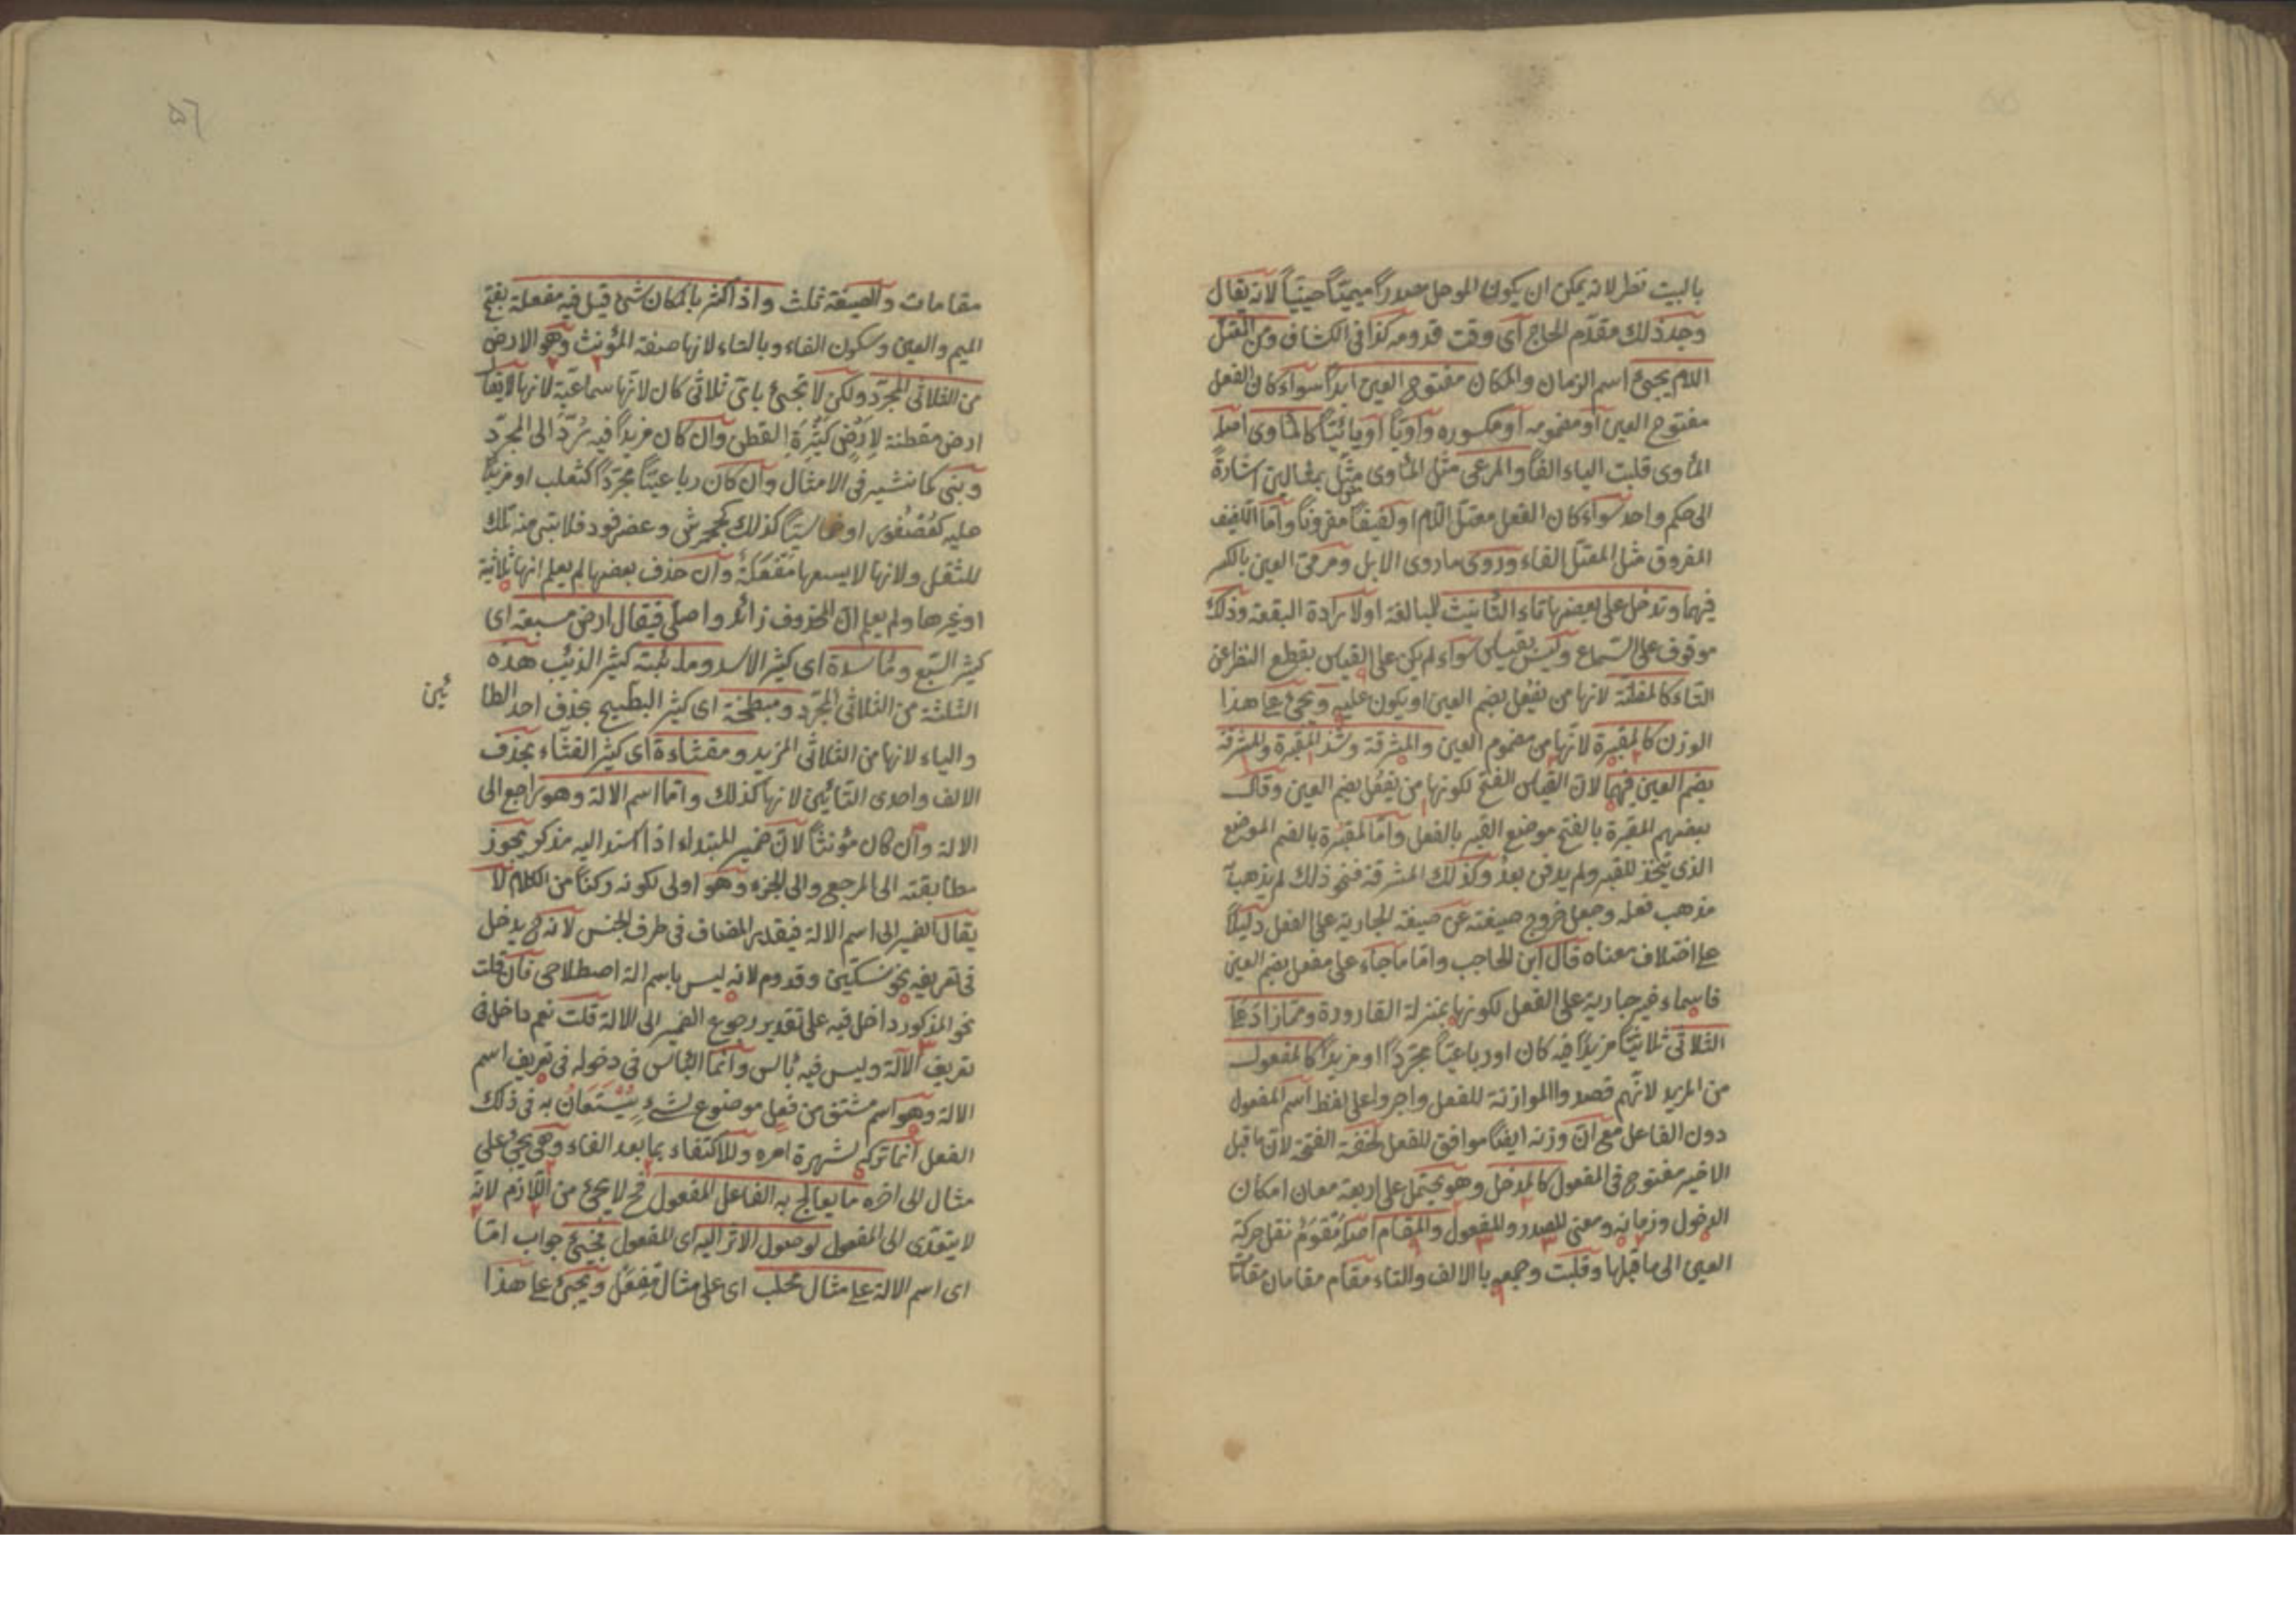 بالبيت نظر لانه يمكن ان يكون الموحل مصدراً ميميّاً حينياً لانه يقال
وجد ذلك مقدّم الحاج اى وقت قدومه كذا فى الكشاف ومن المعتل
اللام يجىء اسم الزمان والمكان مفتوح العين ابداً سواء كان الفعل
مفتوح العين او مضمومه او مكسوره واويّاً او يائيّاً كالمأوى اصله
المأوى قلبت الياء الفاً والمرعى مثل المأوى مثّل بمثالين اشارةً
الى حكم واحد سواء كان الفعل معتلّ اللام او لفيفاً مقروناً وامّا اللفيف
المفروق مثل المعتل الفاء وروى مأوى الابل ومرمى العين بالكسر
فيهما وتدخل على بعضها تاء التّأنيث للمبالغة او لارادة البقعة وذلك
موقوف على السّماع وليس بقياس سواء لم يكن على القياس بقطع النظر عن
التاء كالمظنّة لانها من يفعُل بضم العين او يكون عليه ويجىء على هذا
الوزن كالمقبرة لانّها من مضموم العين والمشرقة وشذّ المقبرة والمشرقة
بضم العين فيهما لان القياس الفتح لكونها من يفعُل بضم العين وقال
بعضهم المقبرة بالفتح موضع القبر بالفعل وامّا المقبرة بالضم الموضع
الذى يتّخذ للقبر ولم يدفن بعدُ وكذلك المشرقة فنحو ذلك لم يذهب به
مذهب فعله وجعل خروج صيغته عن صيغة الجارية على الفعل دليلاً
على اختلاف معناه قال ابن الحاجب وامّا ما جاء على مفعل بضم العين
فاسماء غير جارية على الفعل لكونها بمنزلة القارورة وممّا زاد على
الثلاثى ثلاثيّاً مزيداً فيه كان او رباعيّاً مجرّداً او مزيداً كالمفعول
من المزيد لانّهم قصدوا الموازنة للفعل واجروا على لفظ اسم المفعول
دون الفاعل مع انّ وزنه ايضاً موافق للفعل لخفّة الفتحة لان ما قبل
الاخير مفتوح فى المفعول كالمدخل وهو يحتمل على اربعة معان امكان
الدخول وزمانه ومعنى المصدر والمفعول والمقام اصله مُقوَم نقل حركة
العين الى ما قبلها وقلبت وجمعه بالالف والتاء مقام مقامان مقامات
مقامات والصيغة ثلث واذا كثر بالمكان شئ قيل فيه مفعلة بفتح
الميم والعين وسكون الفاء وبالتاء لانها صفة المؤنث وهو الارض
من الثلاثى المجرّد ولكن لا تجىء باىّ ثلاثى كان لانّها سماعيّة لانها لا يقال
ارض مقطنة لارض كثيرة القطن وان كان مزيداً فيه يُردّ الى المجرّد
وبنى كما نشير فى الامثال وان كان رباعيّاً مجرّداً كثعلب او مزيداً
عليه كعُصفور او خماسيّاً كذلك كجحمرش وعضرفوط فلا تبنى منه تلك
للثقل ولانها لا يسعها مَفعَلَة وان حذف بعضها لم يعلم انها ثلاثية
او غيرها ولم يعلم انّ المحذوف زائد او اصلى فيقال ارض مسبعة اى
كثير السّبع ومأسدة اى كثير الاسد ومذئبة كثير الذئب هذه
الثلثة من الثلاثى المجرّد ومبطخة اى كثير البطّيخ بحذف احد الطا
ئين
والياء لانها من الثلاثى المزيد ومقثاءة اى كثير القثّاء بحذف
الالف واحدى الثائين لانها كذلك وامّا اسم الالة وهو راجع الى
الالة وان كان مؤنثاً لانّ ضمير المبتداء اذا اسند اليه مذكر يجوز
مطابقته الى المرجع والى الجزء وهو اولى لكونه ركناً من الكلام لا
يقال الضمير الى اسم الالة فيقدر المضاف فى طرف الجنس لانه ح يدخل
فى تعريفه نحو سكّين وقدوم لانه ليس باسم الة اصطلاحى فان قلت
نحو المذكور داخل فيه على تقدير رجوع الضمير الى الالة قلت نعم داخل فى
تعريف الآلة وليس فيه بأس وانّما البأس فى دخوله فى تعريف اسم
الالة وهو اسم مشتق من فعل موضوع لشىء يُستعان به فى ذلك
الفعل انما ترك لشهرة امره وللاكتفاء بما بعد الفاء وهى يجئ على
مثال الى اخره ما يعالج به الفاعل المفعول فح لا يجئ من اللازم لانّه
لا يتعدّى الى المفعول لوصول الاثر اليه اى المفعول فيجئ جواب امّا
اى اسم الالة على مثال محلب اى على مثال مِفعَل ويجئ على هذا